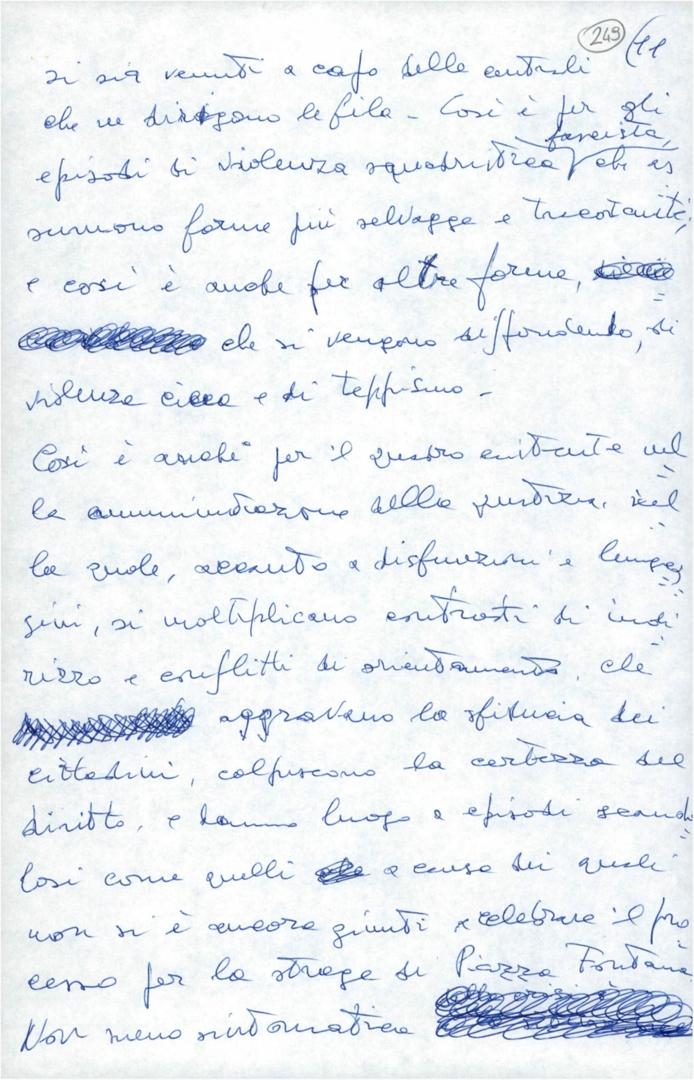 249 (11
si sia venuti a capo delle centrali
che ne dirigono le fila - Così è per gli
fascista,
episodi di violenza squadristica che as
sumono forme più selvagge e tracotanti,
e così è anche per altre forme,
che si vengono diffondendo, di
violenza cieca e di teppismo -
Così è anche per il quadro esistente nel
la amministrazione della giustizia, nel
la quale, accanto a disfunzioni e lungag
gini, si moltiplicano contrasti di indi
rizzo e conflitti di orientamento, che
aggravano la sfiducia dei
cittadini, colpiscono la certezza del
diritto, e danno luogo a episodi scanda
losi come quelli a causa dei quali
non si è ancora giunti a celebrare il pro
cesso per la strage di Piazza Fontana.
Non meno sintomatica